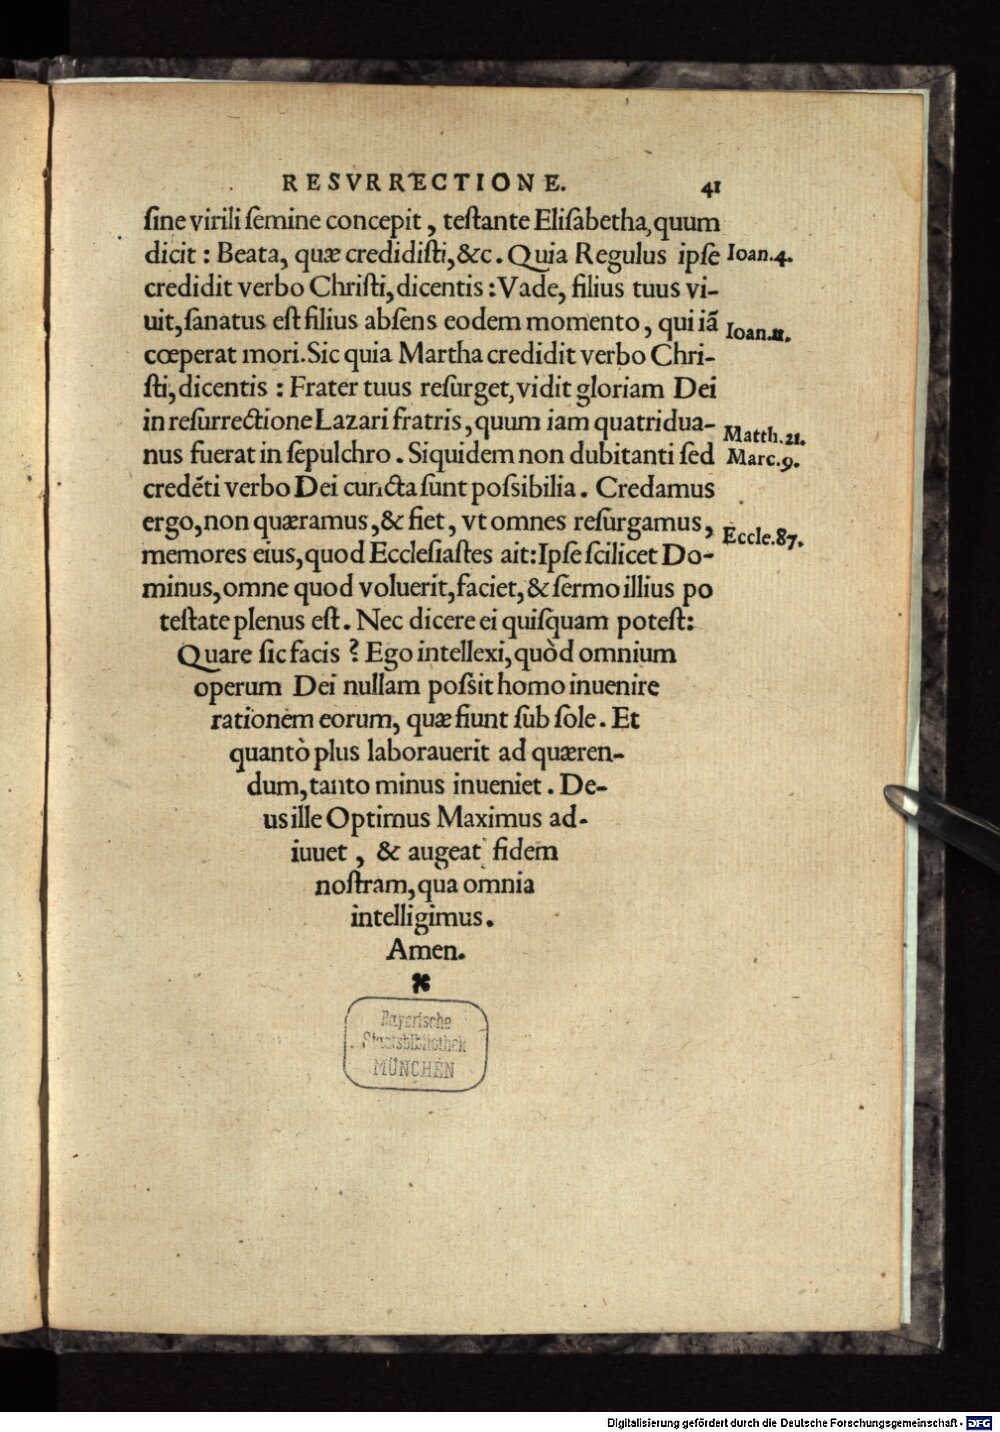 RESVRRECTIONE. 41
ſine virili ſemine concepit, teſtante Eliſabetha, quum
dicit: Beata, quæ credidiſti, &c. Quia Regulus ipſe Ioan.4.
credidit verbo Chriſti, dicentis: Vade, filius tuus vi-
uit, ſanatus eſt filius abſens eodem momento, qui iã Ioan.11.
cœperat mori. Sic quia Martha credidit verbo Chri-
ſti, dicentis: Frater tuus reſurget, vidit gloriam Dei
in reſurrectione Lazari fratris, quum iam quatridua- Matth.21.
nus fuerat in ſepulchro. Siquidem non dubitanti ſed Marc.9.
credẽti verbo Dei cuncta ſunt poſsibilia. Credamus
ergo, non quæramus, & fiet, vt omnes reſurgamus, Eccle.87.
memores eius, quod Eccleſiaſtes ait: Ipſe ſcilicet Do-
minus, omne quod voluerit, faciet, & ſermo illius po
teſtate plenus eſt. Nec dicere ei quiſquam poteſt:
Quare ſic facis? Ego intellexi, quòd omnium
operum Dei nullam poſsit homo inuenire
rationem eorum, quæ fiunt ſub ſole. Et
quantò plus laborauerit ad quæren-
dum, tanto minus inueniet. De-
us ille Optimus Maximus ad-
iuuet, & augeat fidem
noſtram, qua omnia
intelligimus.
Amen.
Bayerische
Staatsbibliothek
MÜNCHEN
Digitalisierung gefördert durch die Deutsche Forschungsgemeinschaft - DFG